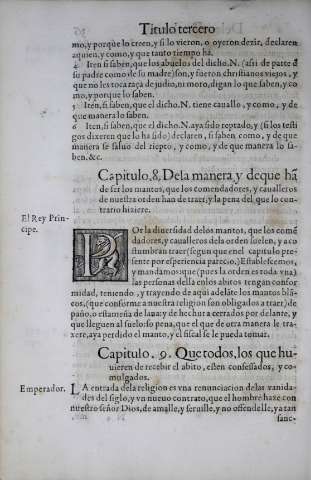 Titulo tercero
mo, y porque lo creen, y si lo vieron, o oyeron dezir, declaren
aquien, y como, y que tanto tiempo ha.
4 Iten si saben, que los abuelos del dicho. N. (assi de parte d̃
su padre como de su madre) son, y fueron christianos viejos, y
que no les toca raça de judio, ni moro, digan lo que saben, y co
mo, y porque lo saben.
5 Itē, si saben, que el dicho. N. tiene cauallo, y como, y de
que manera lo saben.
6 Iten, si saben, que el dicho. N. aya sido reptado, y (si los testi
gos dixeren que lo ha sido) declaren, si saben como, y de que
manera se saluo del riepto, y como, y de que manera lo sa-
ben. &c.
Capitulo. 8. De la manera y de que hã
de ser los mantos, que los comendadores, y caualleros
de nuestra orden han de traer, y la pena del que lo con-
trario hiziere.
El Rey Prin-
cipe.
POr la diuersidad de los mantos, que los comẽ
dadores, y caualleros de la orden suelen, y aco
stumbran traer (segun que en el capitulo pre-
sente por esperiencia parecio,) Establescemos,
y mandamos: que (pues la orden es toda vna)
las personas della en los abitos tengan confor
midad, teniendo, y trayendo de aqui adelãte los mantos blã-
cos, (que conforme a nuestra religion son obligados a traer) de
paño, o estameña de lana: y de hechura cerrados por delante, y
que lleguen al suelo: so pena, que el que de otra manera le tra-
xere, aya perdido el manto, y el fiscal se le pueda tomar.
Capitulo. 9. Que todos, los que hu-
uieren de recebir el abito, esten confessados, y co-
mulgados.
Emperador.
LA entrada de la religion es vna renunciacion de las vanida-
des del siglo, y vn nuevo contrato, que el hombre haze con
nuestro señor Dios, de amalle, y seruille, y no offendelle, ya tan
sanc-